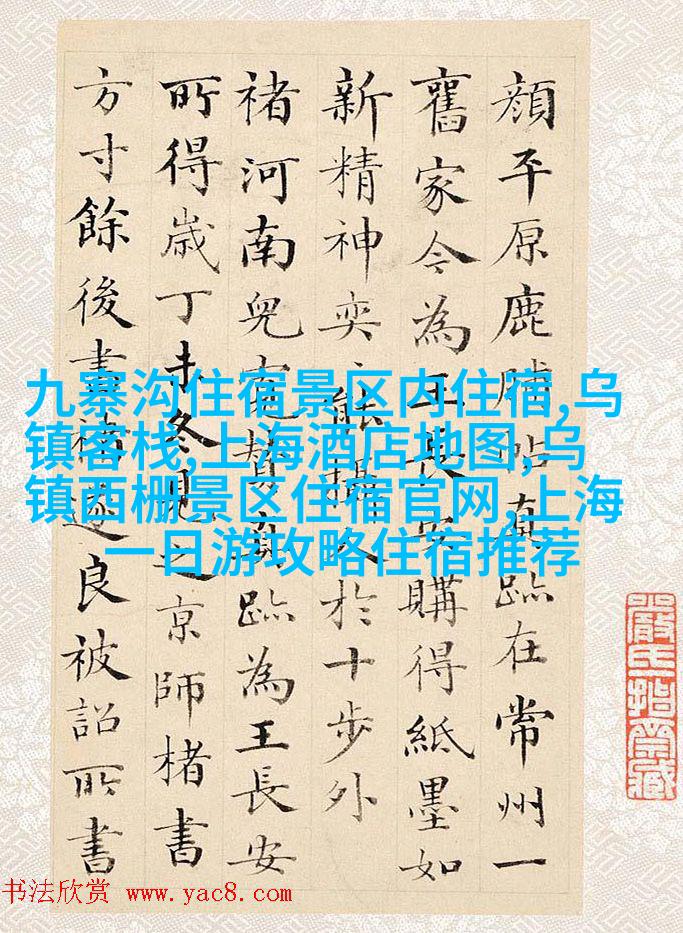 顏平原鹿脯帖真跡在常州一
舊家今為王長安購得紙墨如
新精神奕〻能攝人於十步外
褚河南兒寬贊真跡為王長安
所得歲丁未冬見之京師楮書
方寸餘後書褚遂良被詔所書
九寨沟住宿景区内住宿,乌
镇客栈,上海酒店地图,乌
镇西栅景区住宿官网,上海
一日游攻略住宿推荐
书法欣赏 www.yac8.com